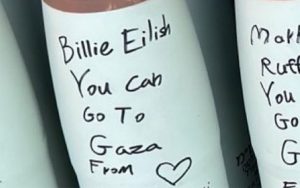 Billie Eilish
You Can
Go To
Gaza
From ♡
Mark
Ruff
You
Go
G
Fr